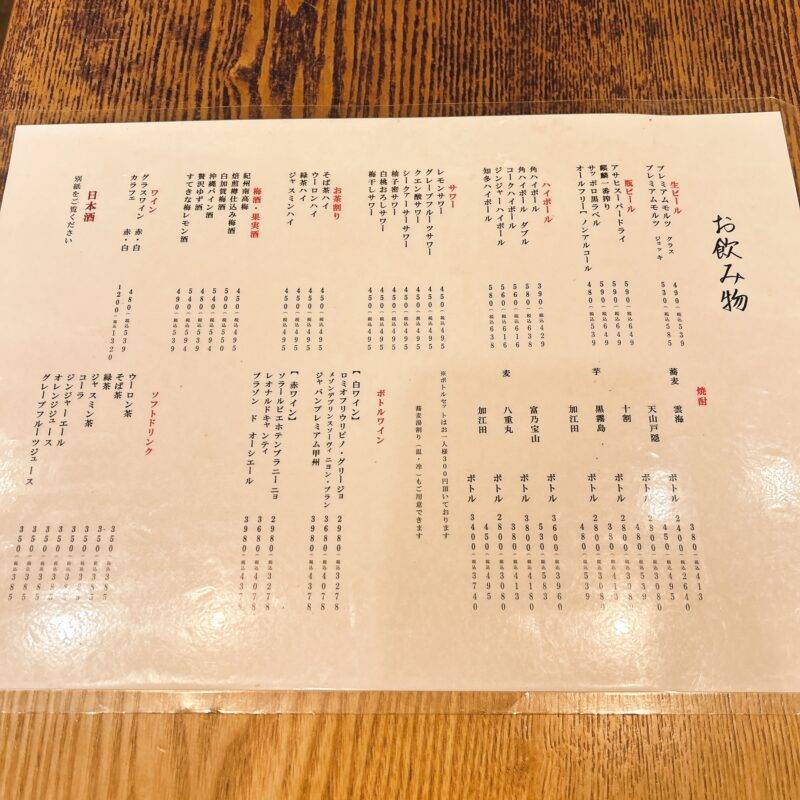 お飲み物
生ビール
プレミアムモルツ グラス 490(税込539
プレミアムモルツ ジョッキ 530(税込585
瓶ビール
アサヒスーパードライ 590(税込649
麒麟一番搾り 590(税込649
サッポロ黒ラベル 590(税込649
オールフリー[ノンアルコール 480(税込539
ハイボール
角ハイボール 390(税込429
角ハイボール ダブル 580(税込638
コークハイボール 560(税込616
ジンジャーハイボール 560(税込616
知多ハイボール 580(税込638
サワー
レモンサワー 450(税込495
グレープフルーツサワー 450(税込495
クエン酸サワー 450(税込495
シークァーサーサワー 450(税込495
柚子蜜サワー 450(税込495
白桃おろしサワー 450(税込495
梅干しサワー 450(税込495
お茶割り
そば茶ハイ 450(税込495
ウーロンハイ 450(税込495
緑茶ハイ 450(税込495
ジャスミンハイ 450(税込495
梅酒・果実酒
紀州南高梅 450(税込495
焙煎樽仕込み梅酒
白加賀梅酒
沖縄パイン酒
贅沢ゆず酒
すてきな梅レモン酒 490(税込539
ワイン
グラスワイン 赤・白 480(税込539
カラフェ 赤・白 1200(税込1320
日本酒
別紙をご覧ください
焼酎
蕎麦 雲海 380(税込413
ボトル 2400(税込2640
天山戸隠 450(税込495
ボトル 2800(税込3080
十割
ボトル
芋 黒霧島
ボトル 2800(税込3080
加江田 480(税込539
ボトル
富乃宝山 530(税込583
ボトル
麦 八重丸 380(税込413
ボトル 2800(税込3080
加江田 450(税込495
ボトル 3400(税込3740
※ボトルセットはお一人様300円頂いております
蕎麦湯割り(温・冷)もご用意できます
ボトルワイン
【白ワイン】
ロミオフリウリピノ・グリージョ 2980(税込3278
メゾンデプリンスソーヴィニヨン・ブラン 3680(税込4078
ジャパンプレミアム甲州 3980(税込4378
【赤ワイン】
ソラールビエホテンプラニーニョ 2980(税込3278
レオナルドキャンティ 3680(税込4078
ブラゾン ド オーシエール 3980(税込4378
ソフトドリンク
ウーロン茶 350(税込385
そば茶 350(税込385
緑茶 350(税込385
ジャスミン茶 350(税込385
コーラ 350(税込385
ジンジャーエール 350(税込385
オレンジジュース 350(税込385
グレープフルーツジュース 350(税込385